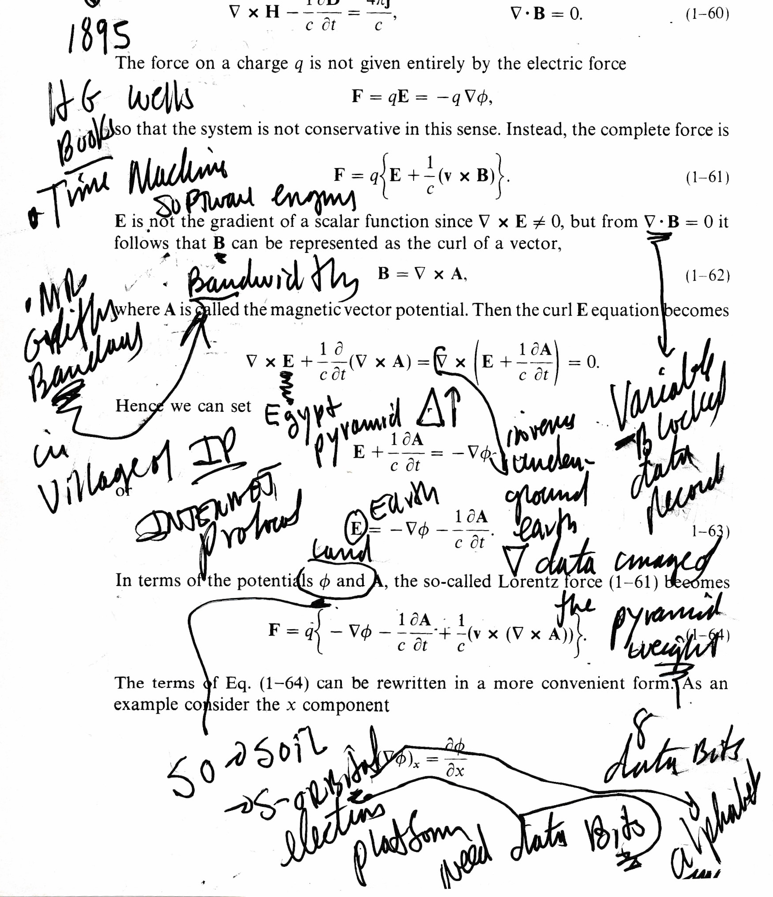 ∇ × H − 1/c ∂D/∂t = 4πj/c, ∇ · B = 0. (1–60)
1895
The force on a charge q is not given entirely by the electric force
H G Wells
F = qE = −q ∇φ,
Books
so that the system is not conservative in this sense. Instead, the complete force is
Time Machine
F = q{E + 1/c (v × B)}. (1–61)
Software
E is not the gradient of a scalar function since ∇ × E ≠ 0, but from ∇ · B = 0 it
follows that B can be represented as the curl of a vector,
Bandwidth
B = ∇ × A, (1–62)
where A is called the magnetic vector potential. Then the curl E equation becomes
MR
∇ × E + 1/c ∂/∂t (∇ × A) = ∇ × (E + 1/c ∂A/∂t) = 0.
Hence we can set
Egypt
pyramid Δ↑
E + 1/c ∂A/∂t = −∇φ
in
Village of IP
or
INTERNET
Protocol
Variable
Blocked
data
Record
inverse
under-
ground
earth
∇ data
Earth
E = −∇φ − 1/c ∂A/∂t. 1–63)
Land
In terms of the potentials φ and A, the so-called Lorentz force (1–61) becomes
the pyramid
weight
F = q{−∇φ − 1/c ∂A/∂t + 1/c (v × (∇ × A))}. (1–64)
The terms of Eq. (1–64) can be rewritten in a more convenient form. As an
example consider the x component
(∇φ)x = ∂φ/∂x
8
data Bits
alphabet
SO → SOIL
→ S-ORBital
platform
need data Bits